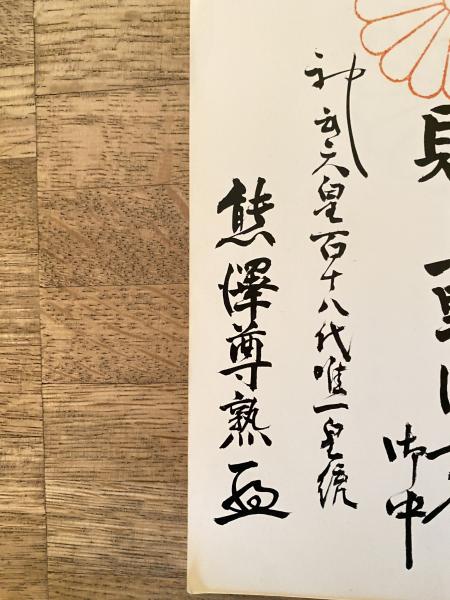 御中
神武天皇百十八代唯一皇統
熊澤尊熟